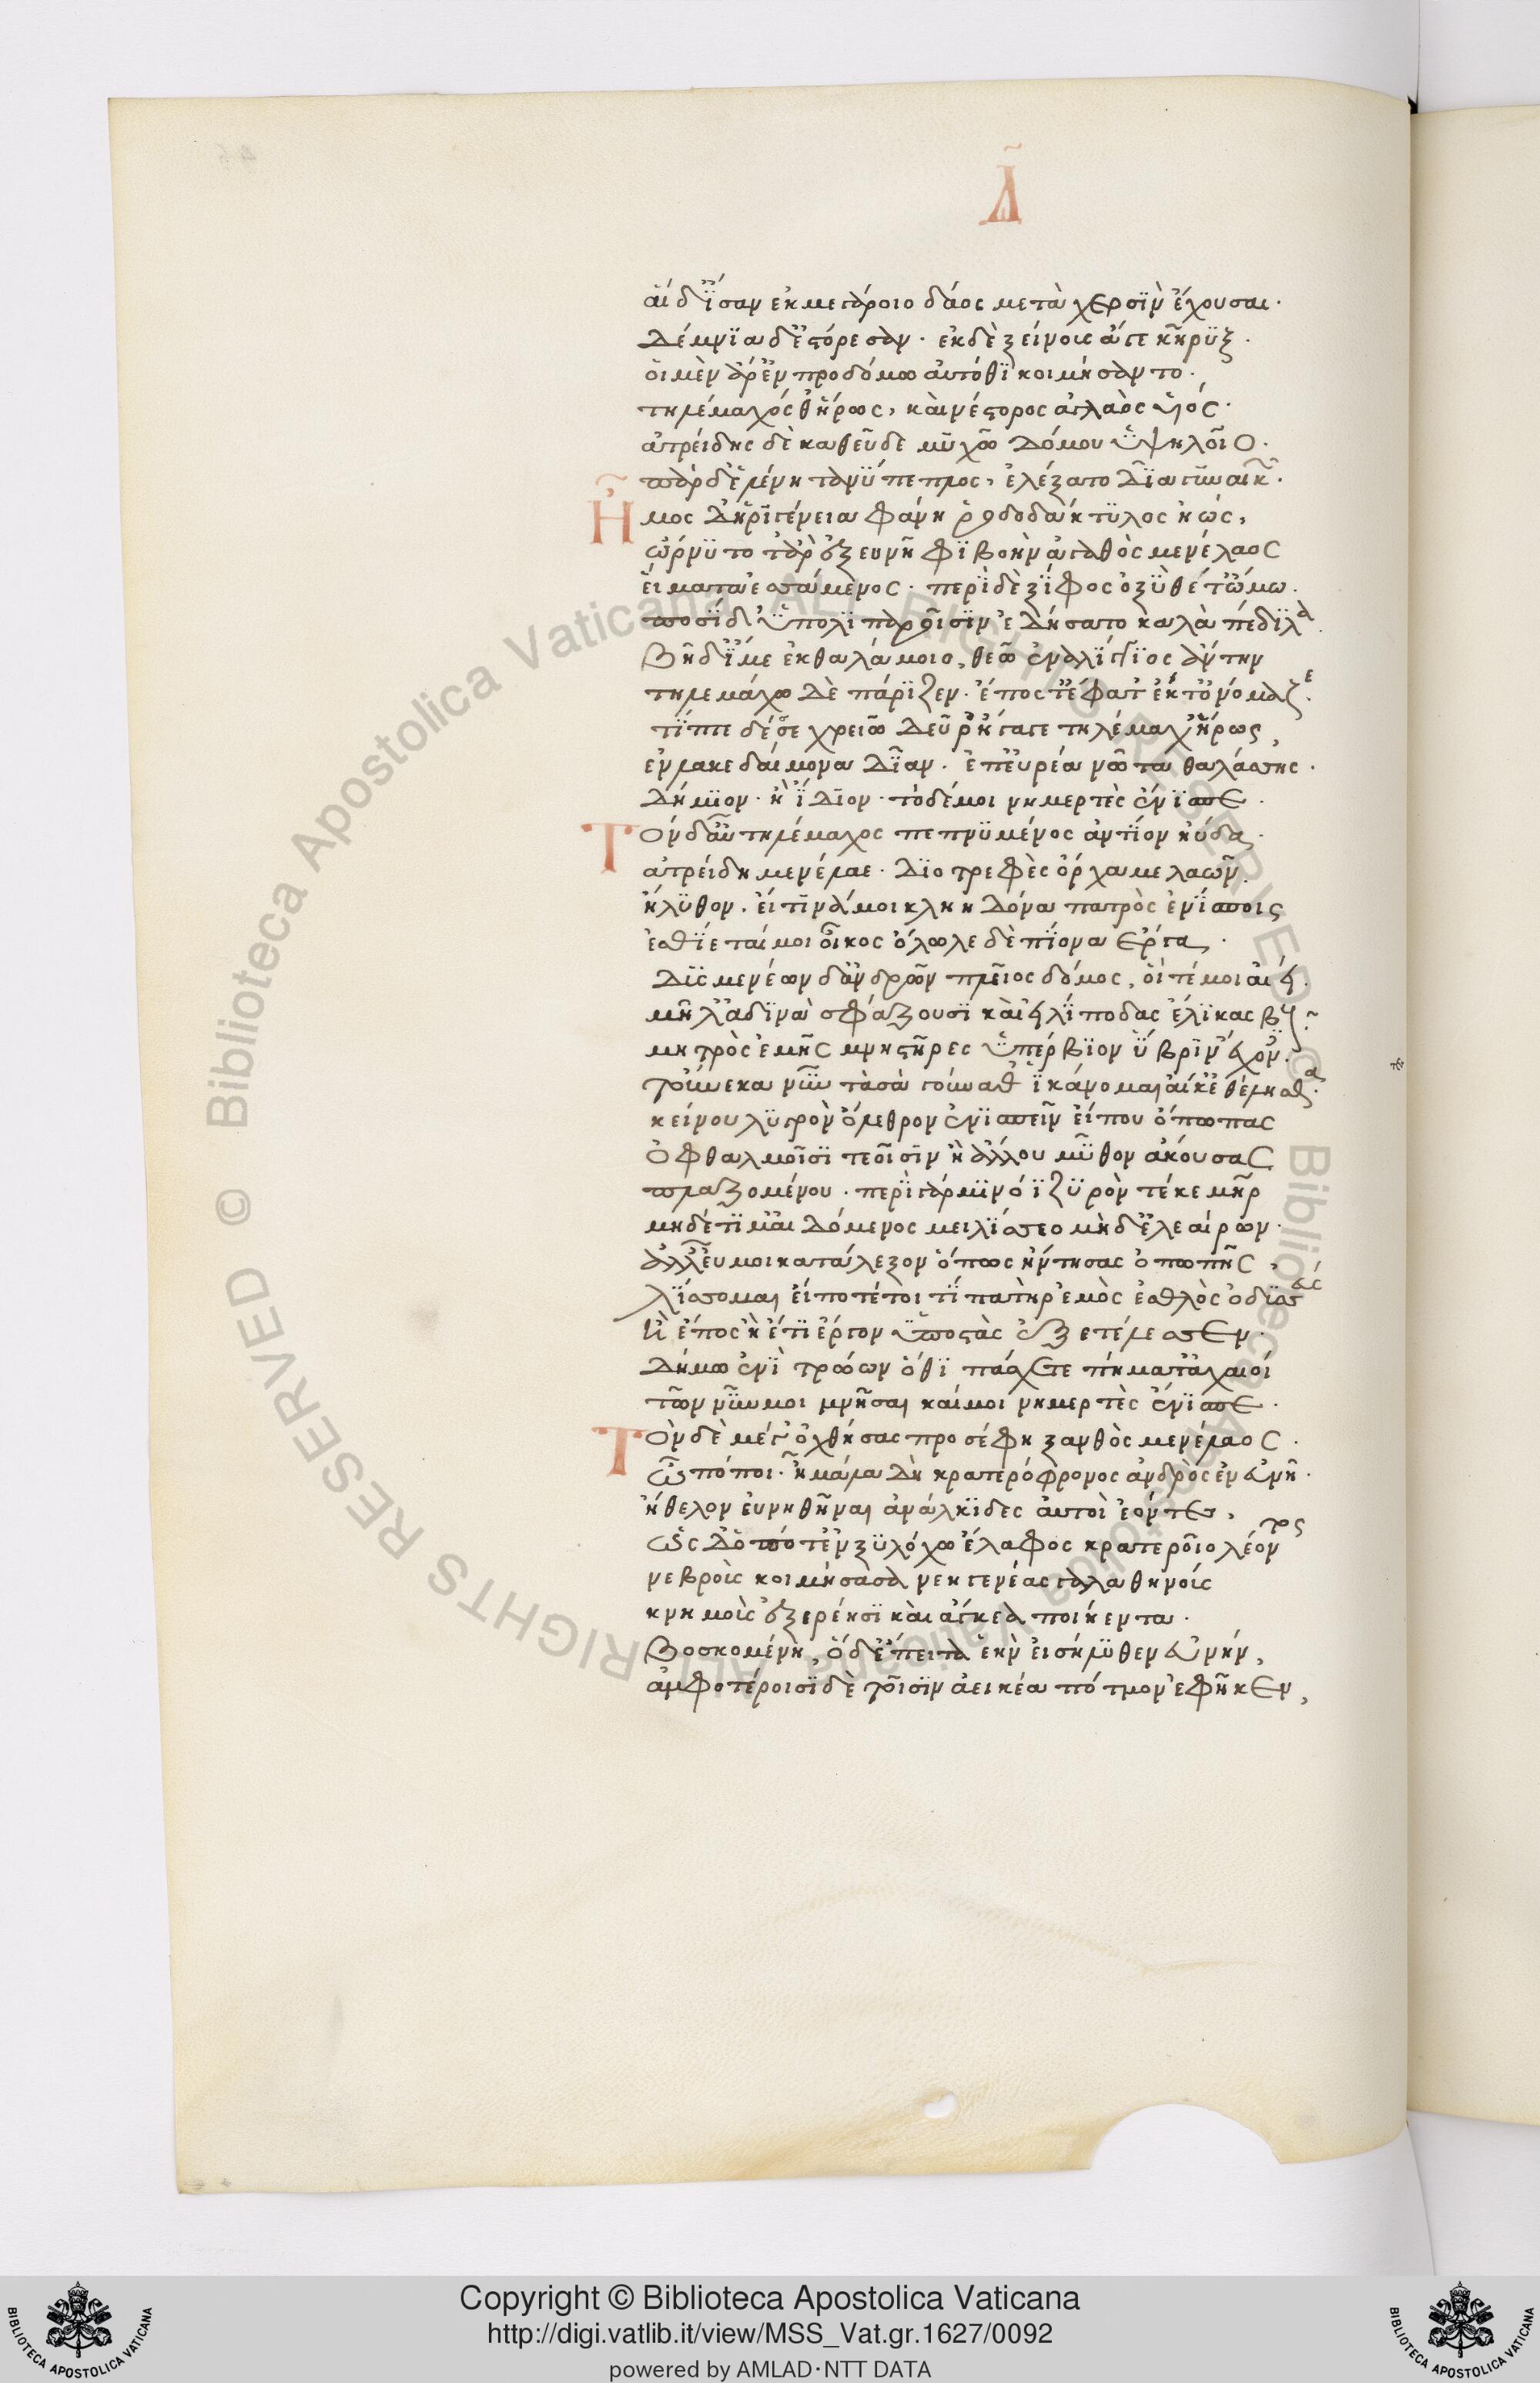 Δ
αἱ δ᾽ ἴσαν ἐκ μεγάροιο δάος μετὰ χερσὶν ἔχουσαι.
Δέμνια δ᾽ ἐστόρεσαν. ἐκ δὲ ξείνους ἄγε κῆρυξ.
οἱ μὲν ἄρ᾽ ἐν προδόμω αὐτόθι κοιμήσαντο.
τηλέμαχός θ᾽ ἥρως, καὶ νέστορος ἀγλαὸς υἱός.
ἀτρείδης δὲ καθεῦδε μυχῶ Δόμου ὑψηλοῖο.
πὰρ δ᾽ ἑλένη τανύπεπλος, ἐλέξατο Δῖα γυναικῶν.
Ἦμος Δ᾽ ἠριγένεια φάνη ῥοδοδάκτυλος ἠώς,
ὤρνυτο τ᾽ ἂρ ἐξ εὐνῆφι βοὴν ἀγαθὸς μενέλαος
εἵματα ἑσσάμενος. περὶ δὲ ξίφος ὀξὺ θέτ᾽ ὤμω.
ποσὶ δ᾽ ὑπὸ λιπαροῖσιν ἐδήσατο καλὰ πέδιλα.
Βῆ δ᾽ ἴμεν ἐκ θαλάμοιο, θεῶ ἐναλίγκιος ἄντην
τηλεμάχω Δὲ πάριζεν. ἔπος τ᾽ ἔφατ᾽ ἔκ τ᾽ ὀνόμαζε.
τίπτε δέ σε χρειὼ Δεῦρ᾽ ἤγαγε τηλέμαχ᾽ ἥρως,
ἐν λακεδαίμονα Δῖαν. ἐπ᾽ εὐρέα νῶτα θαλάσσης.
Δήμιον. ἢ ἴΔιον. τὸ δέ μοι νημερτὲς ἐνίσπε.
Τὸν δ᾽ αὖ τηλέμαχος πεπνυμένος ἀντίον ηὔδα.
ἀτρείδη μενέλαε. Διοτρεφὲς ὄρχαμε λαῶν.
ἤλυθον. εἴ τινά μοι κληηΔόνα πατρὸς ἐνίσποις
ἐσθίεταί μοι οἶκος ὄλωλε δὲ πίονα ἔργα.
Δυσμενέων δ᾽ ἀνδρῶν πλεῖος δόμος, οἵ τέ μοι αἰεί.
μῆλ᾽ ἀδινὰ σφάζουσι καὶ εἰλίποδας ἕλικας βοῦς.
μητρὸς ἐμῆς μνηστῆρες ὑπέρβιον ὕβριν ἔχοντες.
τοὔνεκα νῦν τὰ σὰ γούναθ᾽ ἱκάνομαι αἴ κ᾽ ἐθέλησθα.
κείνου λυγρὸν ὄλεθρον ἐνισπεῖν εἴ που ὄπωπας
Ὀφθαλμοῖσι τεοῖσιν ἢ ἄλλου μῦθον ἄκουσας
πλαζομένου. περὶ γάρ μιν ὀϊζυρὸν τέκε μήτηρ
μηδέ τί μ᾽ αἰΔόμενος μειλίσσεο μὴ δ᾽ ἐλεαίρων.
ἀλλ᾽ εὖ μοι κατάλεξον ὅπως ἤντησας ὀπωπῆς,
λίσσομαι εἴ ποτέ τοί τι πατὴρ ἐμὸς ἐσθλὸς ὀδυσσεύς
ἢ ἔπος ἠέ τι ἔργον ὑποστὰς ἐξετέλεσσεν.
Δήμω ἔνι τρώων ὅθι πάσχετε πήματ᾽ ἀχαιοί
τῶν νῦν μοι μνῆσαι καί μοι νημερτὲς ἐνίσπε.
Τὸν δὲ μέγ᾽ ὀχθήσας προσέφη ξανθὸς μενέλαος.
Ὦ πόποι. ἦ μάλα Δὴ κρατερόφρονος ἀνδρὸς ἐν εὐνῆ.
ἤθελον εὐνηθῆναι ἀνάλκιδες αὐτοὶ ἐόντες,
ὡς Δ᾽ ὁπότ᾽ ἐν ξυλόχω ἔλαφος κρατεροῖο λέοντος
νεβροὺς κοιμήσασα νεηγενέας γαλαθηνούς
κνημοὺς ἐξερέησι καὶ ἄγκεα ποιήεντα.
Βοσκομένη, ὁ δ᾽ ἔπειτα ἑὴν εἰσήλυθεν εὐνήν,
ἀμφοτέροισι δὲ τοῖσιν ἀεικέα πότμον ἐφῆκεν,
Copyright © Biblioteca Apostolica Vaticana
http://digi.vatlib.it/view/MSS_Vat.gr.1627/0092
powered by AMLAD·NTT DATA